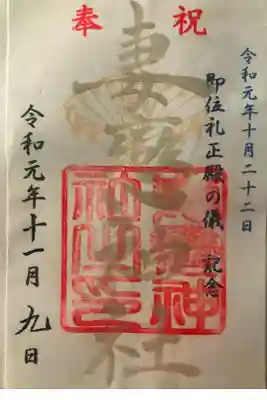 奉祝
令和元年十月二十二日
即位礼正殿の儀 記念
妻戀神社
令和元年十一月九日